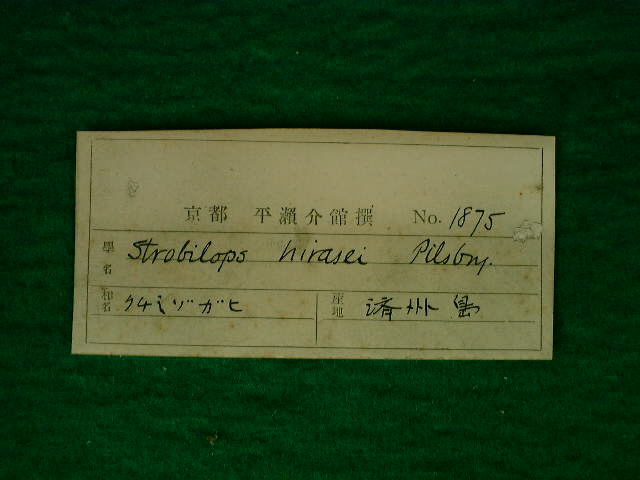 京都 平瀨介館撰 No. 1875
學名 Strobilops hirasei Pilsbry.
和名 クチミゾガヒ 産地 済州島